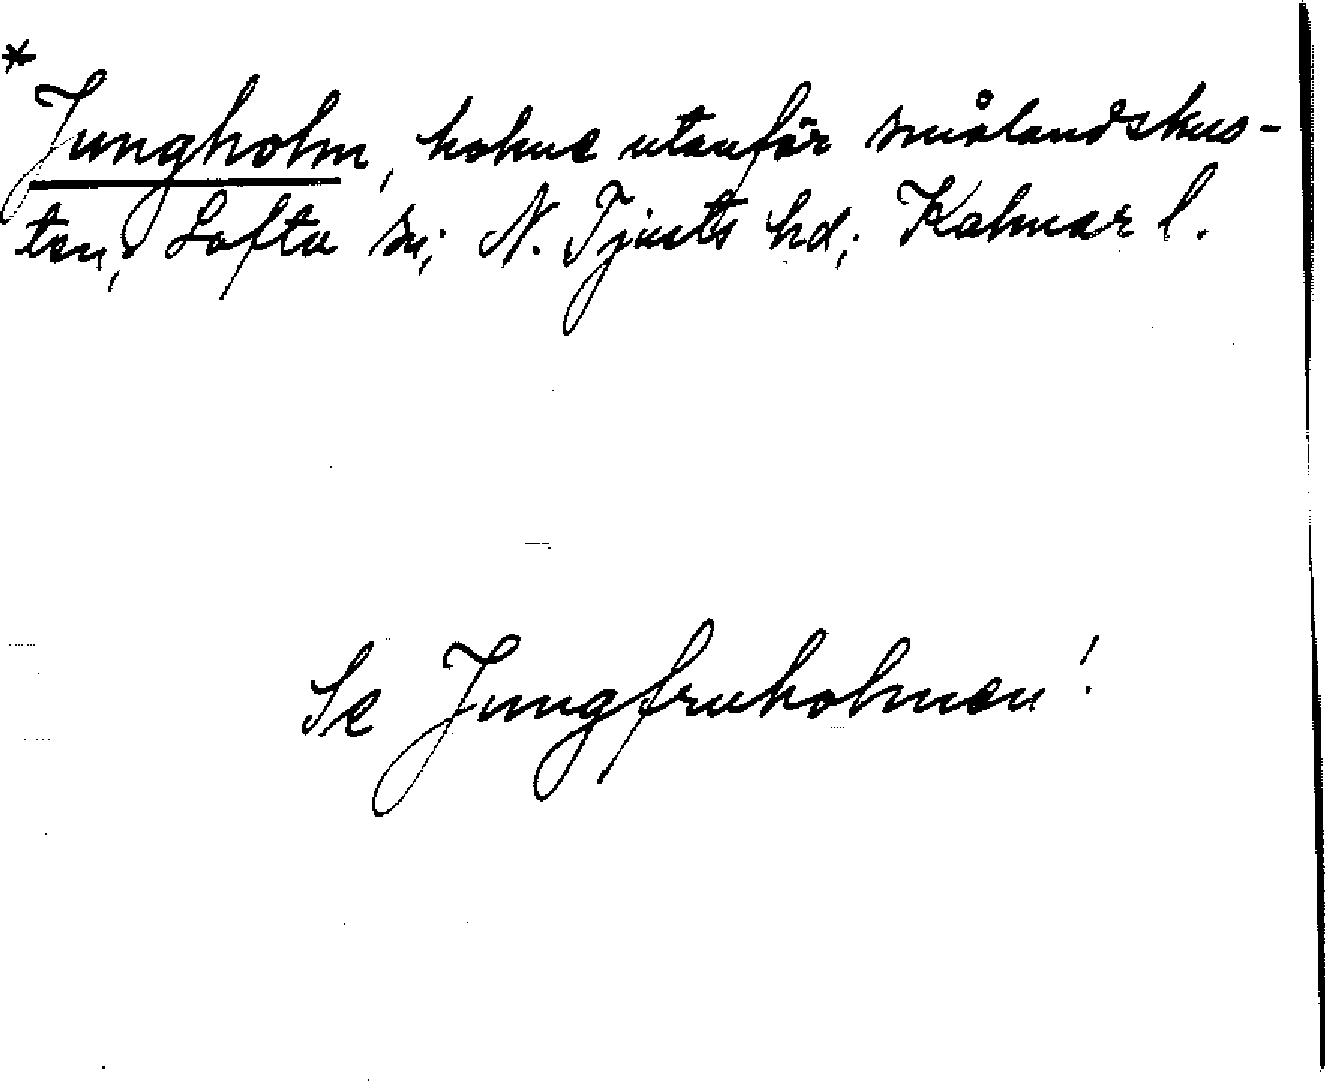 * Jungholm, holme utanför smålandskus-
ten, Lofta sn; N. Tjusts hd; Kalmar l.
Se Jungfruholmen!